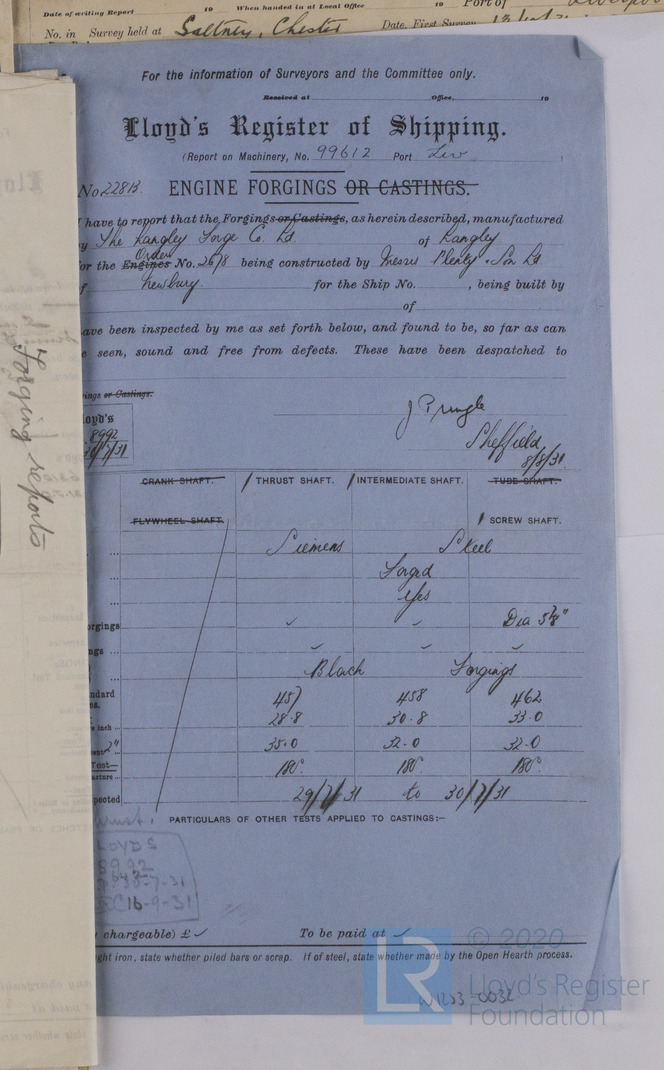 Date of writing Report 19 When handed in at Local Office 19 Port of
No. in Survey held at Saltney, Chester Date. First Survey
For the information of Surveyors and the Committee only.
Received at Office, 19
Lloyd's Register of Shipping.
(Report on Machinery, No. 99612 Port Liv )
No 22813. ENGINE FORGINGS OR CASTINGS.
I have to report that the Forgings or Castings, as herein described, manufactured
by The Langley Forge Co. Ld. of Langley
Order
for the Engines No. 2678 being constructed by Messrs Plenty & Son Ld
of Newbury. for the Ship No. , being built by
of
have been inspected by me as set forth below, and found to be, so far as can
be seen, sound and free from defects. These have been despatched to
ings or Castings.
loyd's
8992
30/7/31
J Pringle
Sheffield,
8/8/31
Forging reports
CRANK SHAFT. / THRUST SHAFT. / INTERMEDIATE SHAFT. TUBE SHAFT.
FLYWHEEL SHAFT / SCREW SHAFT.
Siemens Steel
Forged
Yes
orgings ✓ ✓ Dia 5⅞"
ngs ... ✓ ✓ ✓
Black Forgings
ndard 457 458 462
28.8 30.8 33.0
e inch ...
2" 35.0 32.0 32.0
Test 180° 180° 180°
pected 29/7/31 to 30/7/31
PARTICULARS OF OTHER TESTS APPLIED TO CASTINGS:—
LOYDS
8992
30-7-31
16-9-31
chargeable) £ ✓ To be paid at ✓
ght iron, state whether piled bars or scrap. If of steel, state whether made by the Open Hearth process.
W1203-0032
LR
© 2020
Lloyd's Register
Foundation